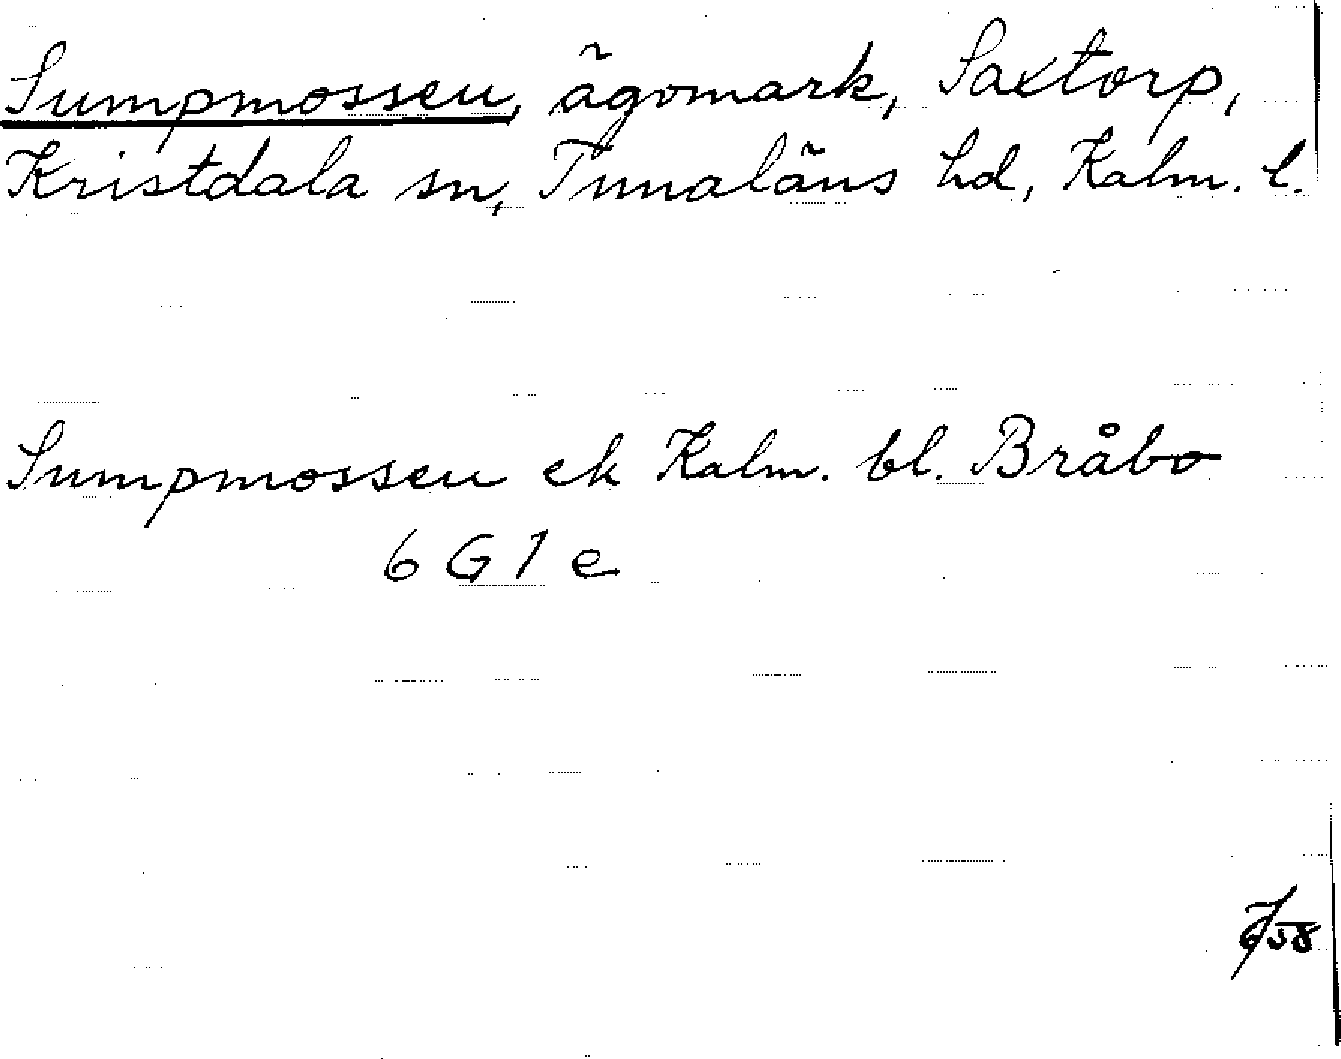 Sumpmossen, ägomark, Saxtorp,
Kristdala sn, Tunaläns hd, Kalm. l.
Sumpmossen ek Kalm. bl. Bråbo
6 G 1 e